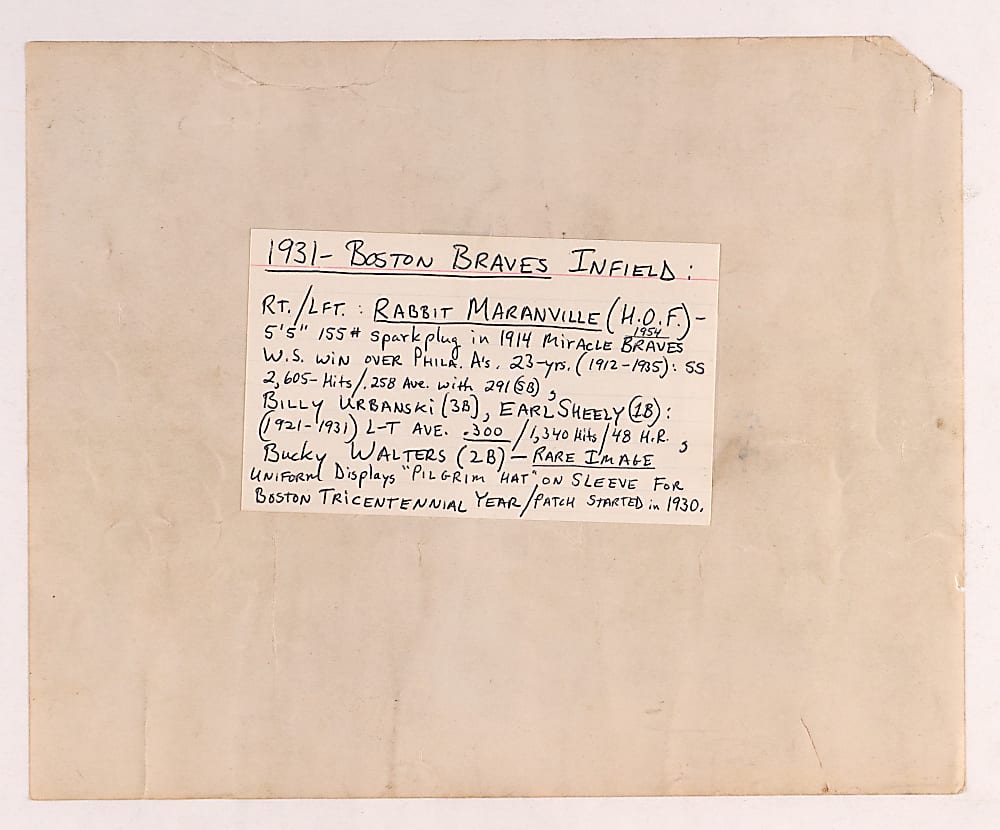 1931- BOSTON BRAVES INFIELD:
RT./LFT. : RABBIT MARANVILLE (H.O.F.)-
1954
5'5" 155# sparkplug in 1914 MIRACLE BRAVES
W.S. WIN OVER PHILA. A's. 23-yrs. (1912-1935): SS
2,605- Hits/.258 Ave. with 291 (SB),
BILLY URBANSKI (3B), EARL SHEELY (1B):
(1921-1931) L-T AVE. .300/1,340 Hits/48 H.R.,
BUCKY WALTERS (2B)- RARE IMAGE
UNIFORM Displays "PILGRIM HAT" ON SLEEVE FOR
BOSTON TRICENTENNIAL YEAR/PATCH STARTED in 1930.